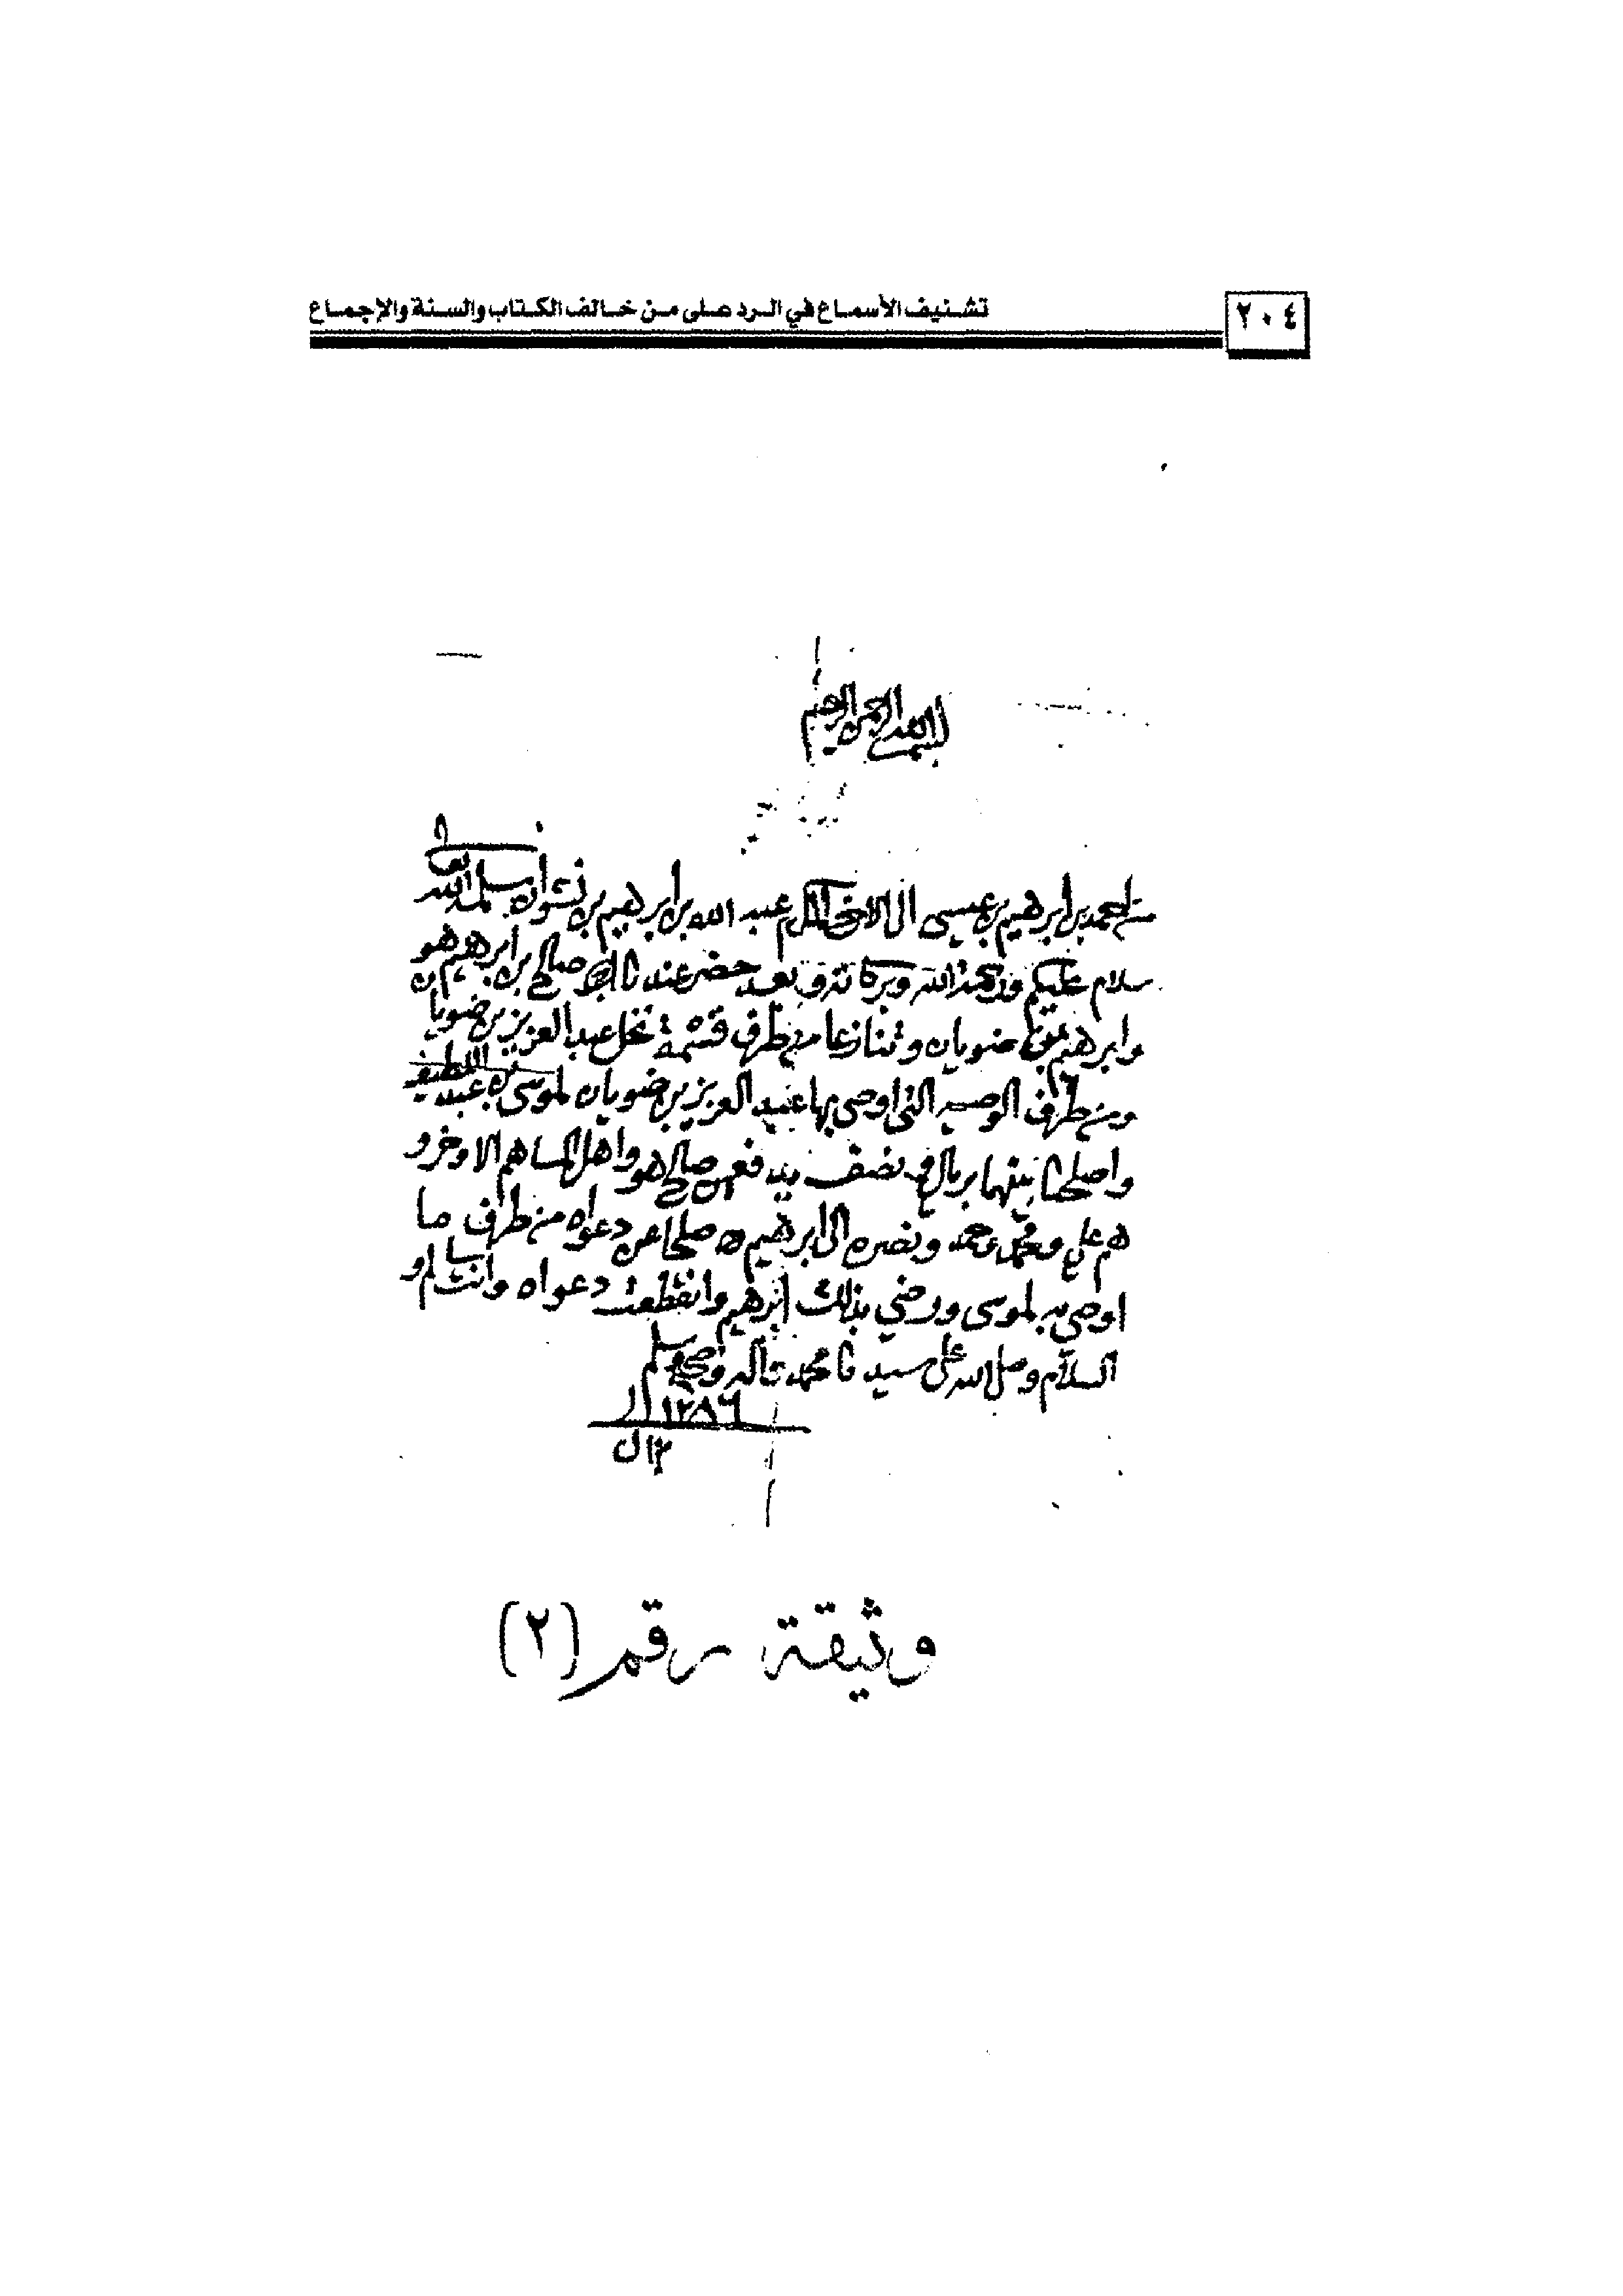 تشنيف الأسماع في الرد على من خالف الكتاب والسنة والإجماع
٢٠٤
بسم الله الرحمن الرحيم
من احمد بن ابرهيم بن عيسى الى الاخ المكرم عبد الله بن ابرهيم بن نشوان سلمه الله تعالى
سلام عليكم ورحمة الله وبركاته وبعد حضر عندنا صالح بن ابرهيم هو
وابرهيم بن ضويان وتنازعا من طرف قسمة نخل عبد العزيز بن ضويان
ومن طرف الوصيه التي اوصى بها عبد العزيز بن ضويان لموسى بن عبد اللطيف
واصلحنا بينهما بريال ونصف يدفعهن صالح هو واهل المساهم الاوخر و
هم علي ومحمد وحمد ونصره الى ابرهيم صلحا عن دعواه من طرف ما
اوصي به لموسى ورضي بذلك ابرهيم وانقطعت دعواه وانت سالم و
السلام وصلى الله على سيدنا محمد وآله وصحبه وسلم
١٢٨٦
١٢ ل
وثيقة رقم (٢)